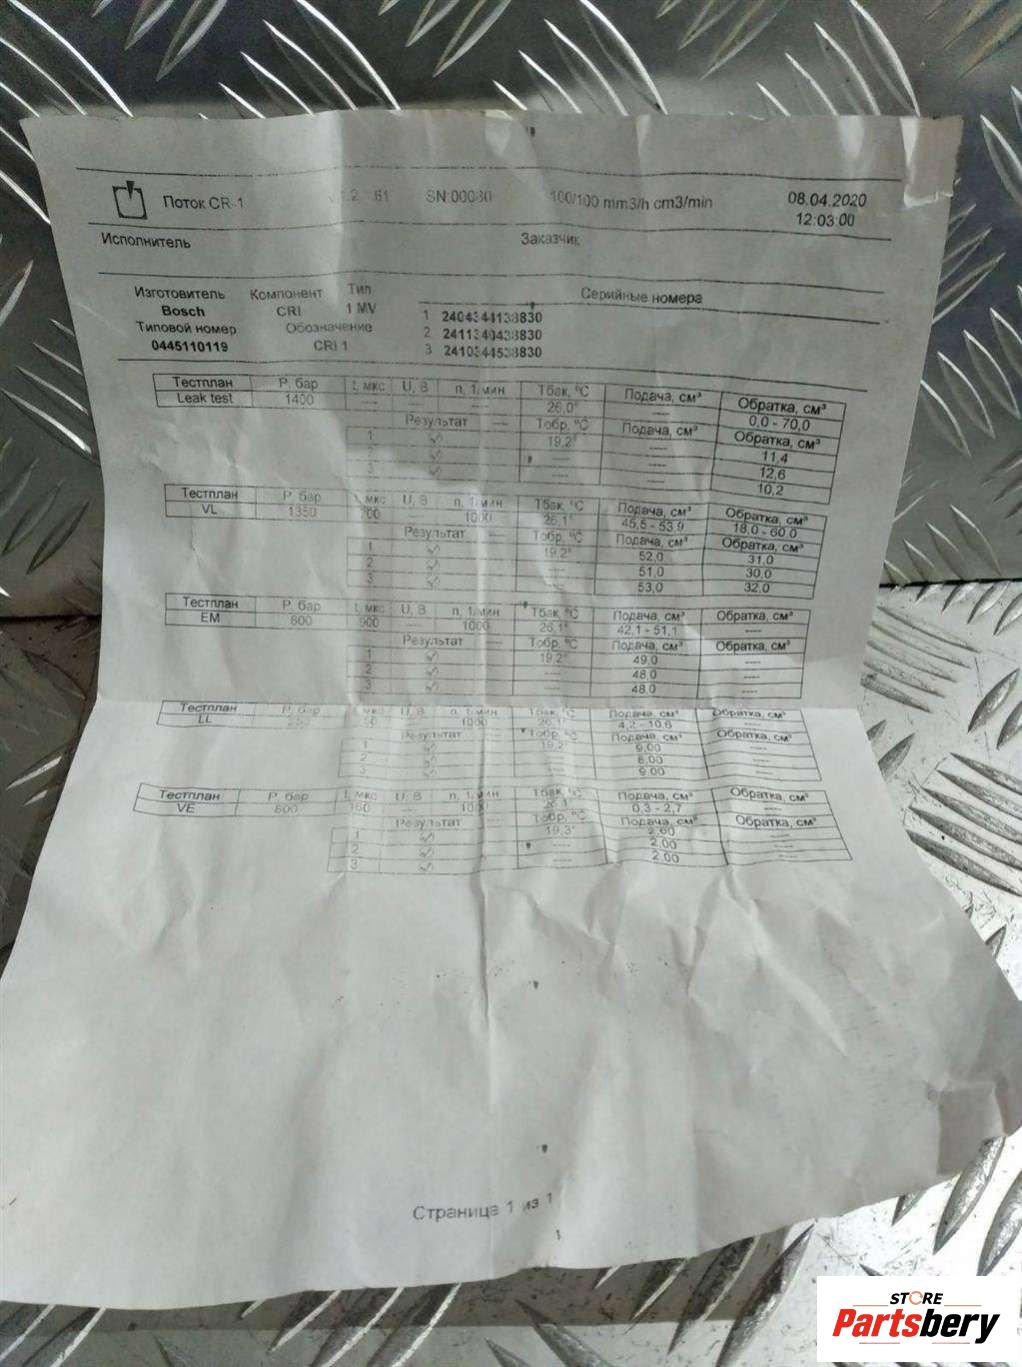 Поток CR-1 SN:00030 100/100 mm3/h cm3/min 08.04.2020
12:03:00
Исполнитель Заказчик
Изготовитель Компонент Тип Серийные номера
Bosch CRI 1 MV 1
Типовой номер Обозначение 2
0445110119 CRI 1 3
Тестплан P, бар t, мкс U, В n, 1/мин Тбак, °C Подача, см³ Обратка, см³
Leak test 1400 ---- ---- ---- 26,0° ---- 0,0 - 70,0
Результат ---- Тобр, °C Подача, см³ Обратка, см³
1 19,2° ---- 11,4
2 ---- ---- 12,6
3 ---- ---- 10,2
Тестплан P, бар t, мкс U, В n, 1/мин Тбак, °C Подача, см³ Обратка, см³
VL 1350 ---- 1000 26,1° 45,5 - 53,9 18,0 - 60,0
Результат ---- Тобр, °C Подача, см³ Обратка, см³
1 19,2° 52,0 31,0
2 ---- 51,0 30,0
3 ---- 53,0 32,0
Тестплан P, бар t, мкс U, В n, 1/мин Тбак, °C Подача, см³ Обратка, см³
EM 800 900 ---- 1000 26,1° 42,1 - 51,1 ----
Результат ---- Тобр, °C Подача, см³ Обратка, см³
1 19,2° 49,0 ----
2 ---- 48,0 ----
3 ---- 48,0 ----
Тестплан P, бар t, мкс U, В n, 1/мин Тбак, °C Подача, см³ Обратка, см³
LL ---- 1000 26,1° 4,2 - 10,6 ----
Результат ---- Тобр, °C Подача, см³ Обратка, см³
1 19,2° 9,00 ----
2 ---- 8,00 ----
3 ---- 9,00 ----
Тестплан P, бар t, мкс U, В n, 1/мин Тбак, °C Подача, см³ Обратка, см³
VE 800 160 ---- 1000 26,1° 0,3 - 2,7 ----
Результат ---- Тобр, °C Подача, см³ Обратка, см³
1 19,3° 2,00 ----
2 ---- 2,00 ----
3 ---- 2,00 ----
Страница 1 из 1
STORE
Partsbery